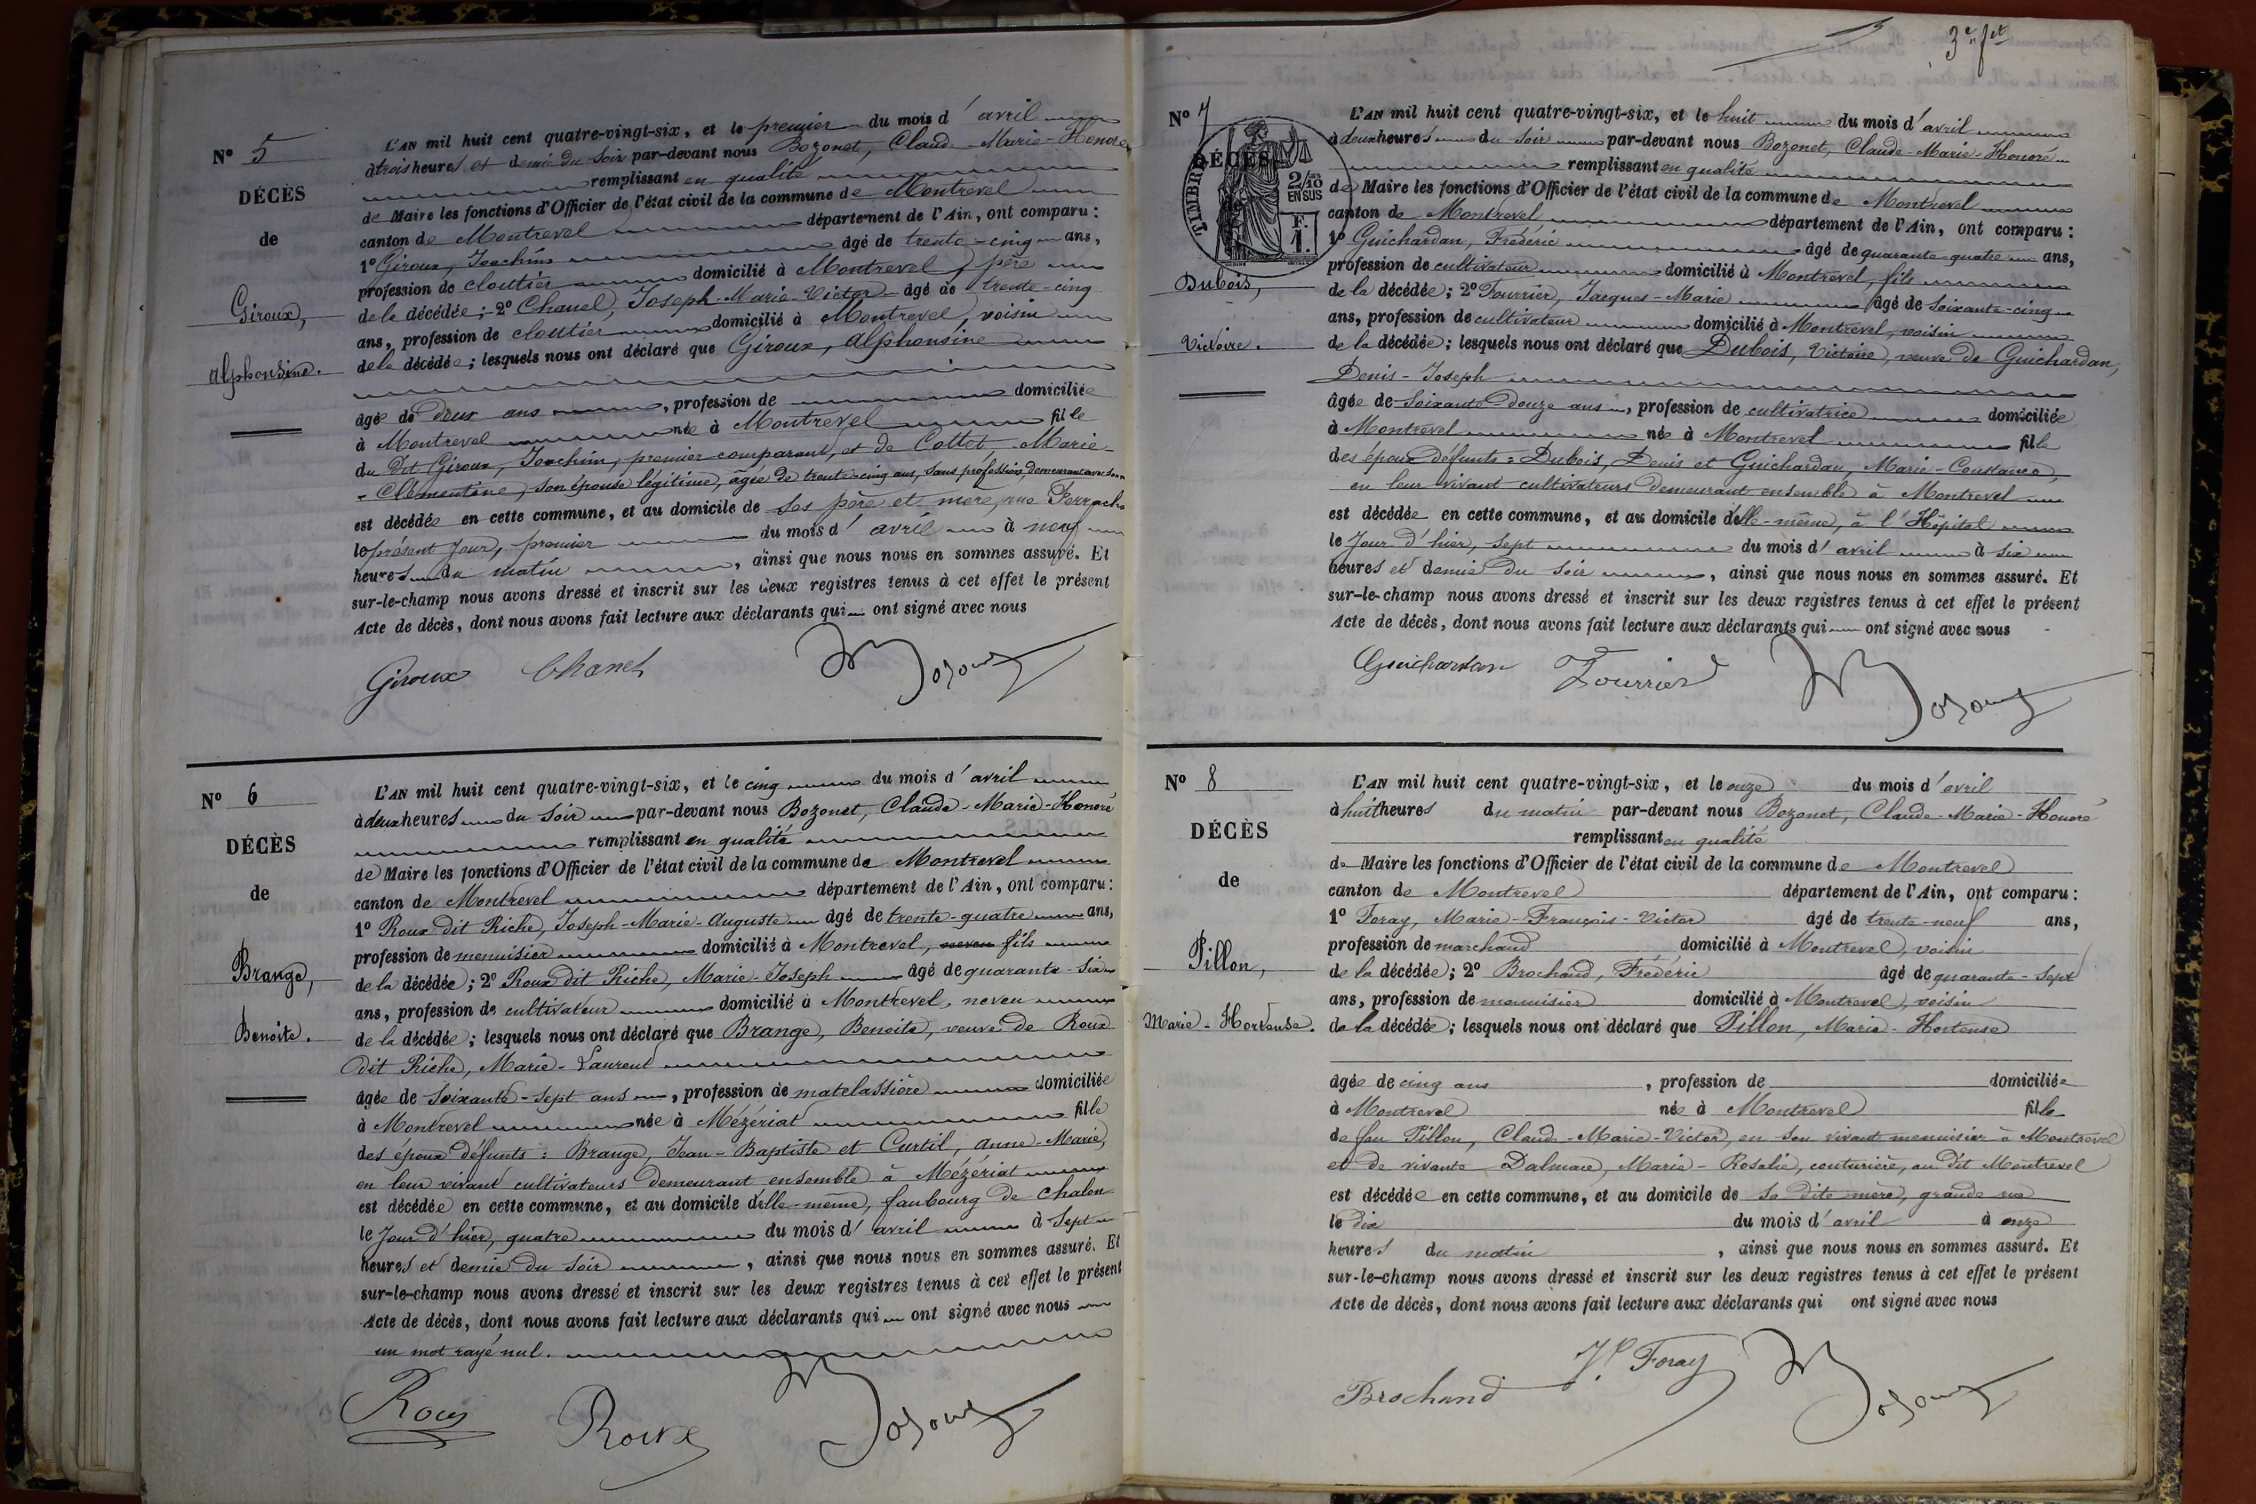 N° 5
DÉCÈS
de
Giroux,
Alphonsine.
L'AN mil huit cent quatre-vingt-six, et le premier du mois d'avril
à trois heures et demie du soir par-devant nous Bozonet, Claude-Marie-Honoré
remplissant en qualité
de Maire les fonctions d'Officier de l'état civil de la commune de Montrevel
canton de Montrevel département de l'Ain, ont comparu :
1° Giroux, Joachim âgé de trente-cinq ans,
profession de cloutier domicilié à Montrevel, père
de la décédée ; 2° Chanel, Joseph-Marie-Victor âgé de trente-cinq
ans, profession de cloutier domicilié à Montrevel, voisin
de la décédée ; lesquels nous ont déclaré que Giroux, Alphonsine
âgée de deux ans, profession de domiciliée
à Montrevel née à Montrevel fille
du dit Giroux, Joachim, premier comparant, et de Collet, Marie-
-Clémentine, son épouse légitime, âgée de trente-cinq ans, sans profession, demeurant avec son
est décédée en cette commune, et au domicile de ses père et mère, rue
le présent jour, premier du mois d'avril à neuf
heures du matin, ainsi que nous nous en sommes assuré. Et
sur-le-champ nous avons dressé et inscrit sur les deux registres tenus à cet effet le présent
Acte de décès, dont nous avons fait lecture aux déclarants qui ont signé avec nous
Giroux Chanel Bozonet
N° 6
DÉCÈS
de
Brange,
Benoite.
L'AN mil huit cent quatre-vingt-six, et le cinq du mois d'avril
à deux heures du soir par-devant nous Bozonet, Claude-Marie-Honoré
remplissant en qualité
de Maire les fonctions d'Officier de l'état civil de la commune de Montrevel
canton de Montrevel département de l'Ain, ont comparu :
1° Roux dit Riche, Joseph-Marie-Auguste âgé de trente-quatre ans,
profession de menuisier domicilié à Montrevel, neveu fils
de la décédée ; 2° Roux dit Riche, Marie-Joseph âgé de quarante-six
ans, profession de cultivateur domicilié à Montrevel, neveu
de la décédée ; lesquels nous ont déclaré que Brange, Benoite, veuve de Roux
dit Riche, Marie-Laurent
âgée de soixante-sept ans, profession de matelassière domiciliée
à Montrevel née à Mézériat fille
des époux défunts : Brange, Jean-Baptiste et Curtil, Anne-Marie,
en leur vivant cultivateurs demeurant ensemble à Mézériat
est décédée en cette commune, et au domicile d'elle-même, faubourg de Chalon
le jour d'hier, quatre du mois d'avril à sept
heures et demie du soir, ainsi que nous nous en sommes assuré. Et
sur-le-champ nous avons dressé et inscrit sur les deux registres tenus à cet effet le présent
Acte de décès, dont nous avons fait lecture aux déclarants qui ont signé avec nous
un mot rayé nul.
Roux Roux Bozonet
3e ft
N° 7
DÉCÈS
de
TIMBRE
2/10
EN SUS
F.
1.
Dubois,
Victoire.
L'AN mil huit cent quatre-vingt-six, et le huit du mois d'avril
à deux heures du soir par-devant nous Bozonet, Claude-Marie-Honoré
remplissant en qualité
de Maire les fonctions d'Officier de l'état civil de la commune de Montrevel
canton de Montrevel département de l'Ain, ont comparu :
1° Guichardan, Frédéric âgé de quarante-quatre ans,
profession de cultivateur domicilié à Montrevel, fils
de la décédée ; 2° Fourrier, Jacques-Marie âgé de soixante-cinq
ans, profession de cultivateur domicilié à Montrevel, voisin
de la décédée ; lesquels nous ont déclaré que Dubois, Victoire, veuve de Guichardan,
Denis-Joseph
âgée de soixante-douze ans, profession de cultivatrice domiciliée
à Montrevel née à Montrevel fille
des époux défunts : Dubois, Denis et Guichardan, Marie-Constance,
en leur vivant cultivateurs demeurant ensemble à Montrevel
est décédée en cette commune, et au domicile d'elle-même, à l'Hôpital
le jour d'hier, sept du mois d'avril à six
heures et demie du soir, ainsi que nous nous en sommes assuré. Et
sur-le-champ nous avons dressé et inscrit sur les deux registres tenus à cet effet le présent
Acte de décès, dont nous avons fait lecture aux déclarants qui ont signé avec nous
Guichardan Fourrier Bozonet
N° 8
DÉCÈS
de
Pillon,
Marie-Hortense.
L'AN mil huit cent quatre-vingt-six, et le onze du mois d'avril
à huit heures du matin par-devant nous Bozonet, Claude-Marie-Honoré
remplissant en qualité
de Maire les fonctions d'Officier de l'état civil de la commune de Montrevel
canton de Montrevel département de l'Ain, ont comparu :
1° Foray, Marie-François-Victor âgé de trente-neuf ans,
profession de marchand domicilié à Montrevel, voisin
de la décédée ; 2° Brochand, Frédéric âgé de quarante-sept
ans, profession de menuisier domicilié à Montrevel, voisin
de la décédée ; lesquels nous ont déclaré que Pillon, Marie-Hortense
âgée de cinq ans, profession de domiciliée
à Montrevel née à Montrevel fille
de feu Pillon, Claude-Marie-Victor, en son vivant menuisier à Montrevel
et de vivante Dalmare, Marie-Rosalie, couturière, au dit Montrevel
est décédée en cette commune, et au domicile de sa dite mère, grande rue
le dix du mois d'avril à onze
heures du matin, ainsi que nous nous en sommes assuré. Et
sur-le-champ nous avons dressé et inscrit sur les deux registres tenus à cet effet le présent
Acte de décès, dont nous avons fait lecture aux déclarants qui ont signé avec nous
Brochand Vr. Foray Bozonet